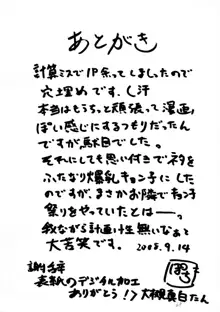 あとがき
計算ミスで1P余ってしまったので
穴埋めです、し汗
本当はもうちっと頑張って漫画っ
ぽい感じにするつもりだったん
ですが駄目でした。
それにしても思い付きでネタを
ふたなり爆乳キョン子にした
のですが、まさかお隣でキョン子
祭りをやっていたとはー。
我ながら計画性無いなぁと
大苦笑です。 2008.9.14
謝辞
表紙のデジタル加工
ありがとう!>大槻真白たん